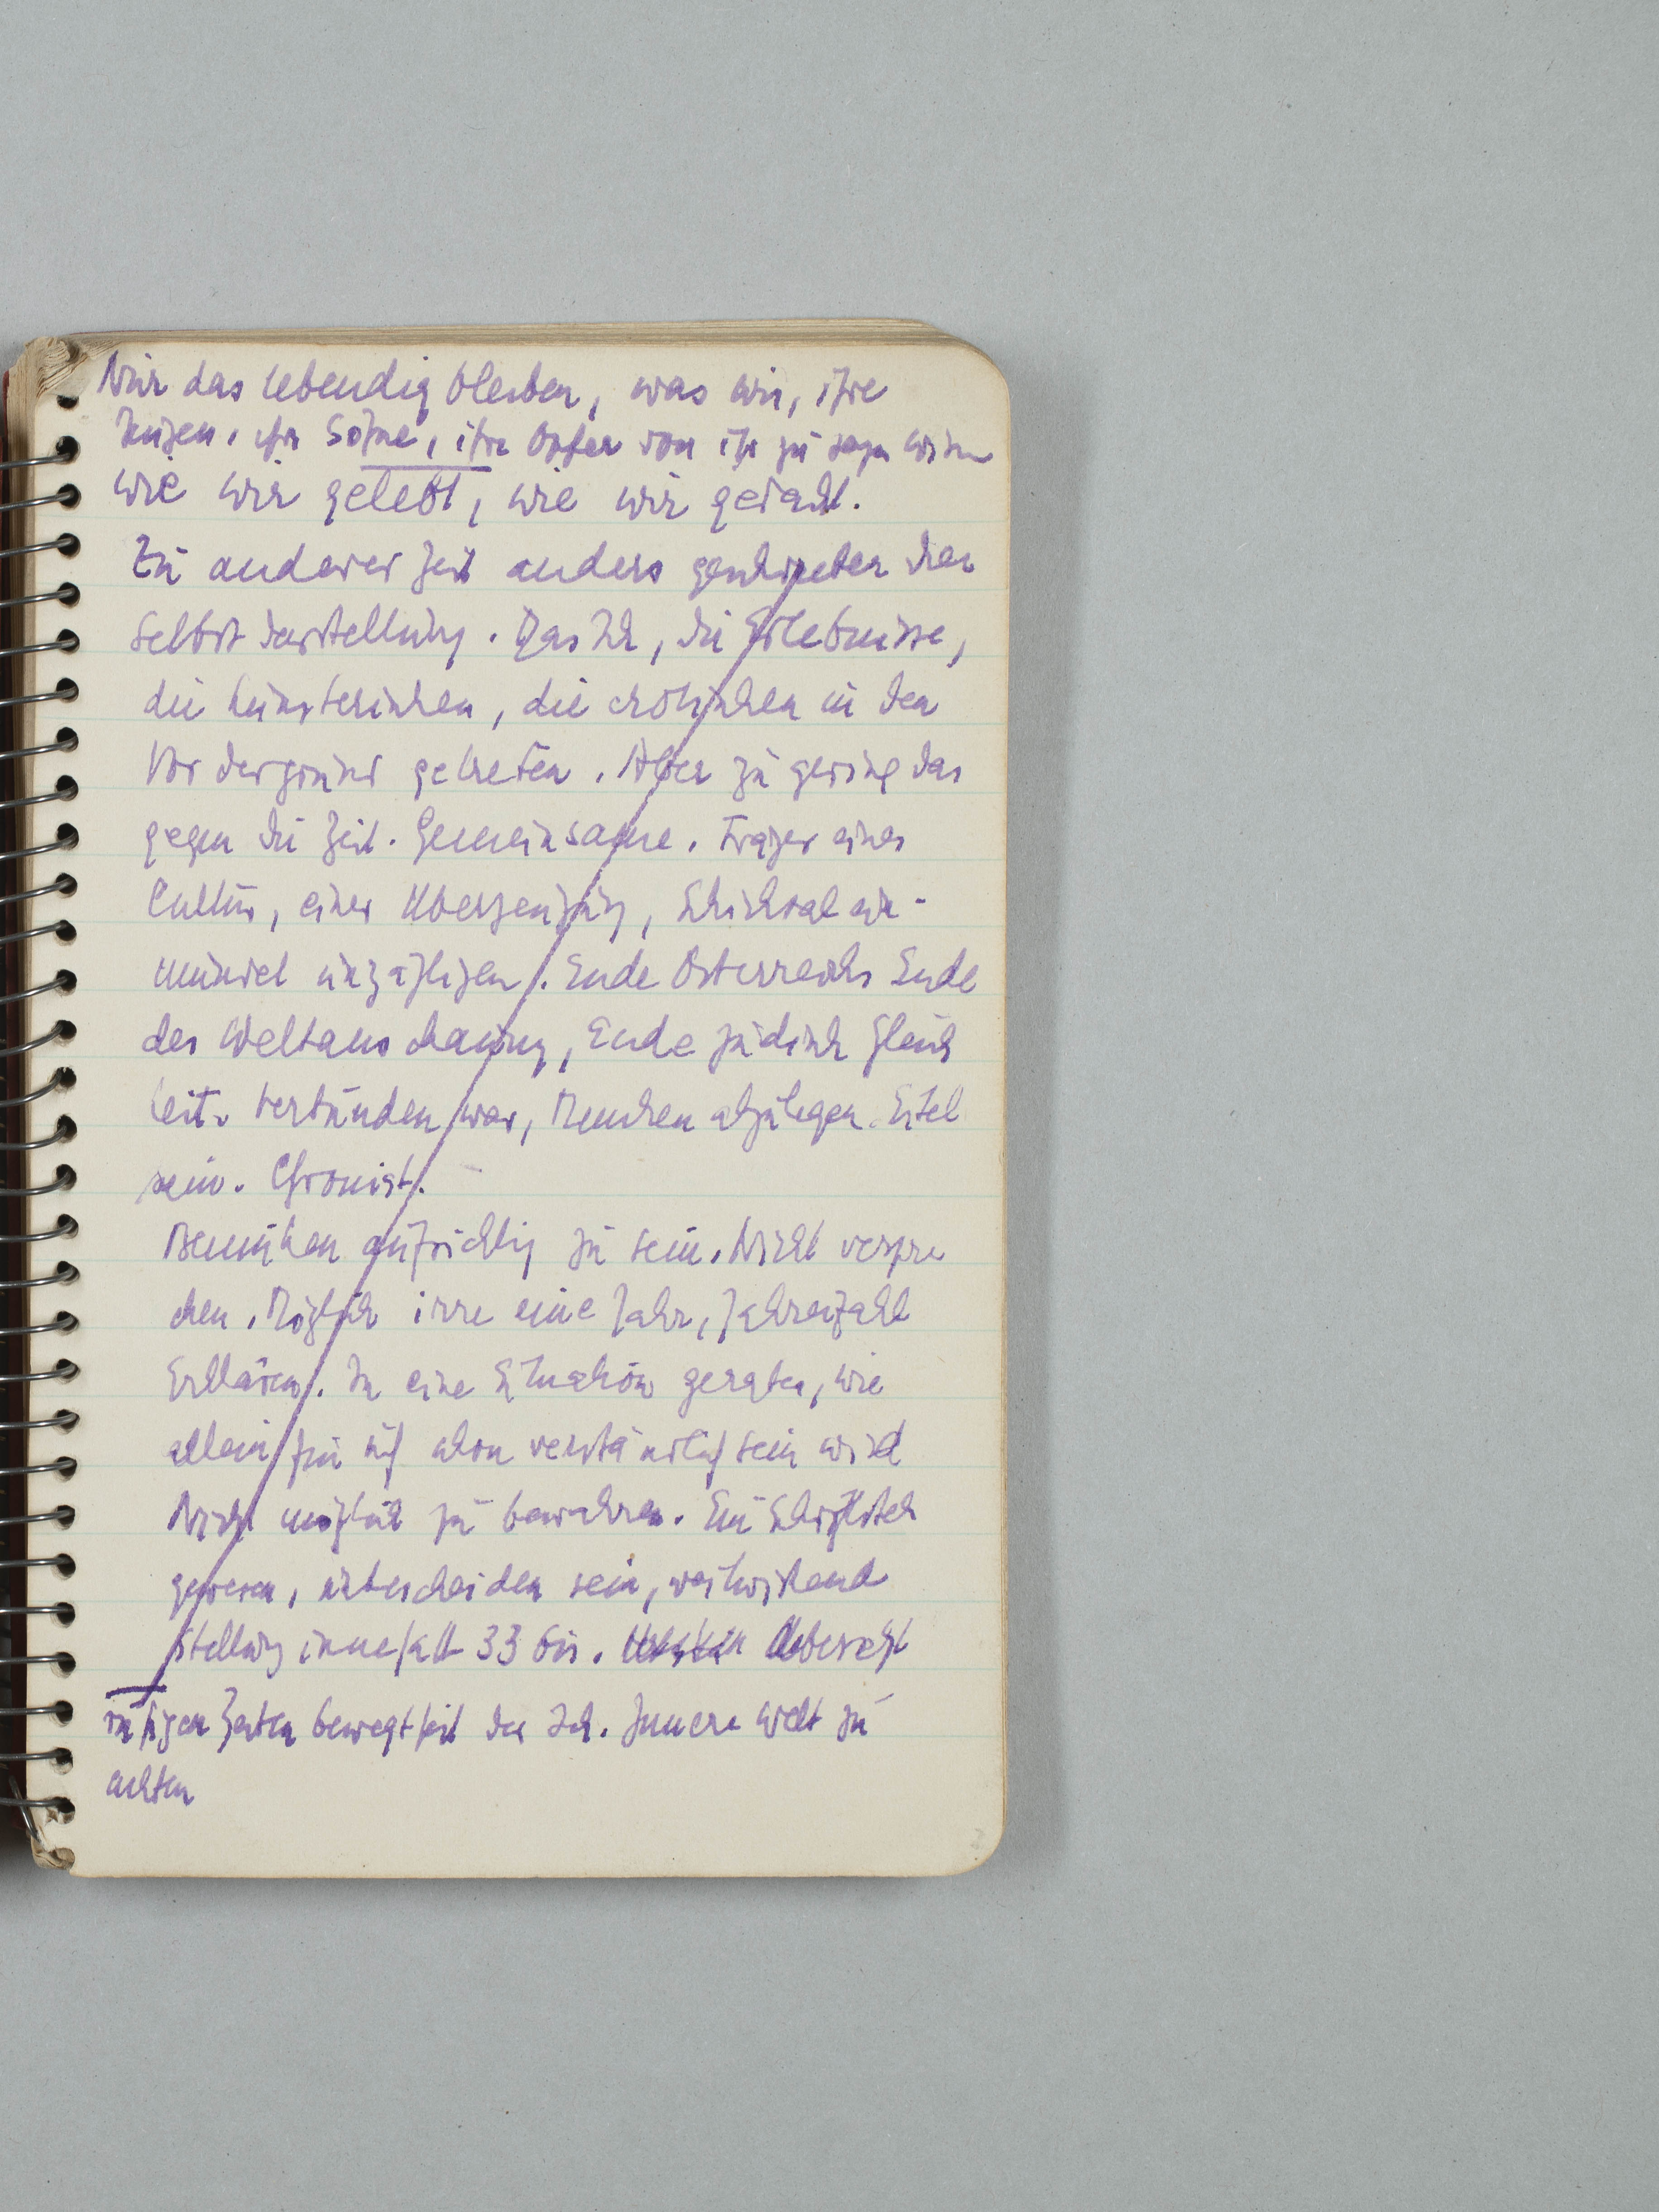 Nur das lebendig bleiben, was wir, ihre
Zeugen, ihre Söhne, ihre Opfer von ihr zu sagen wissen
wie wir gelebt, wie wir gedacht.
Zu anderer Zeit anders geschrieben den
Selbstdarstellung. Das Ich, die Erlebnisse,
die künstlerischen, die erotischen in den
Vordergrund getreten. Aber zu gering das
gegen die Zeit. Gemeinsame. Träger einer
Cultur, einer Überzeugung, Schicksal
unzähligen. Ende Österreichs Ende
der Weltanschauung, Ende jüdisch
verbunden war, Menschen abzulegen. Eitel
sein. Chronist.
Bemühen aufrichtig zu sein. Nicht verspre
chen. Möglich irre eine Jahr, Jahreszahl
Erklären. In eine Situation geraten, wie
allein für sich schon verständlich sein wird
Nicht möglich zu bewahren. Ein
gewesen, unbescheiden sein, weitwirkend
Stellung innehatt 33 bis.
Zeiten bewegtheit das Ich. Innere Welt zu
achten